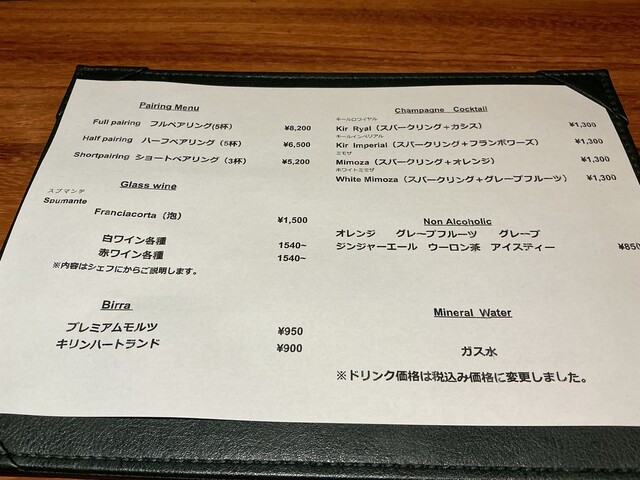 Pairing Menu
Full pairing フルペアリング(5杯) ¥8,200
Half pairing ハーフペアリング（5杯） ¥6,500
Shortpairing ショートペアリング（3杯） ¥5,200
Glass wine
スプマンテ
Spumante
Franciacorta（泡） ¥1,500
白ワイン各種 1540~
赤ワイン各種 1540~
※内容はシェフにからご説明します。
Birra
プレミアムモルツ ¥950
キリンハートランド ¥900
Champagne Cocktail
キールロワイヤル
Kir Ryal（スパークリング＋カシス） ¥1,300
キールインペリアル
Kir Imperial（スパークリング＋フランボワーズ） ¥1,300
ミモザ
Mimoza（スパークリング＋オレンジ） ¥1,300
ホワイトミモザ
White Mimoza（スパークリング＋グレープフルーツ） ¥1,300
Non Alcoholic
オレンジ グレープフルーツ グレープ
ジンジャーエール ウーロン茶 アイスティー ¥850
Mineral Water
ガス水
※ドリンク価格は税込み価格に変更しました。